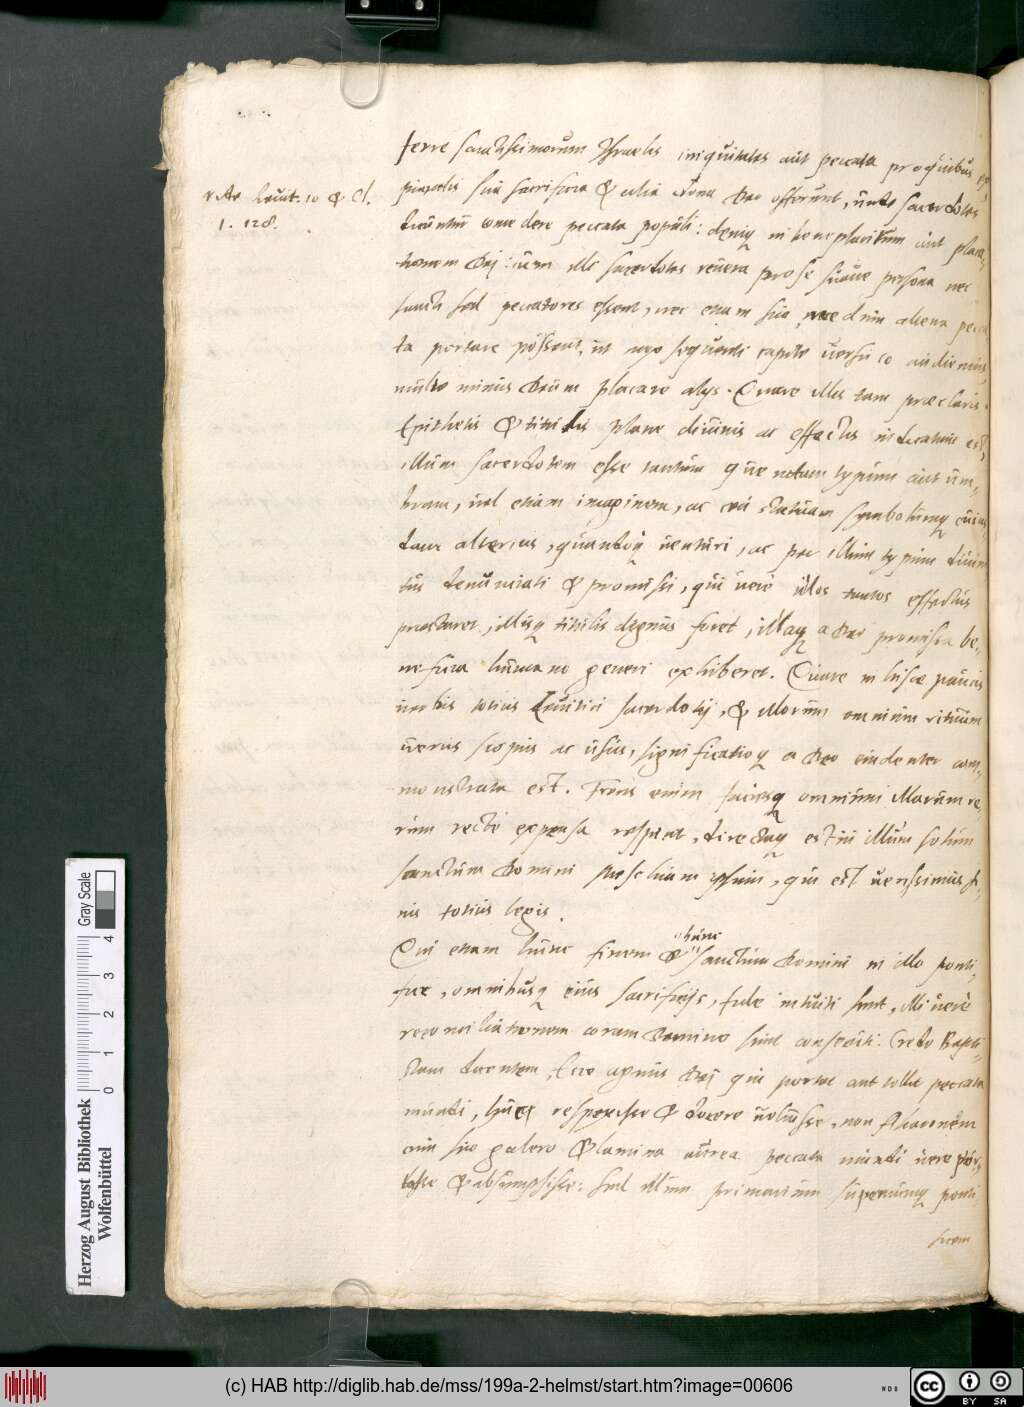 ferre sanctissimorum Israelis iniquitates aut peccata pro quibus ex,
vide Levit. 10 & Cl.
1. 128.
piaculis sua sacrificia & alia dona Deo offerunt, unde sacerdotes
dicuntur comedere peccata populi: deniq in beneplacitum aut placa,
tionem Dei: cum illi sacerdotes revera pro se suaque persona nec
sancti sed peccatores essent, nec etiam sua, nedum aliena pecca
ta portare possent, ut sequenti capite versu audiemus,
multo minus Deum placare alijs. Quare illis tam præclaris
Epithetis & titulis plane divinis ac effectis indicatum est,
illum sacerdotem esse tantum quendam typum aut um,
bram, vel etiam imaginem, ac ceu statuam symbolumq cuius,
dam alterius, quandoq venturi, ac per illum typum divini
tus denunciati & promissi, qui vere illos tantos effectus
præstaret, illisq titulis dignus foret, illaq a Deo promissa be,
neficia humano generi exhiberet. Quare in hisce paucis
verbis totius Levitici sacerdotij, & illorum omnium rituum
verus scopus ac usus, significatioq a Deo evidenter com,
monstrata est. Frons enim faciesq omnium illarum re,
rum recte expensa respicit, directaq est in illum solum
sanctum Domini Messiam ipsum, qui est verissimus fi,
nis totius legis.
Qui etiam hunc finem & "hunc" sanctum Domini in illo ponti,
fice, omnibusq eius sacrificijs, fide intuiti sunt, illi vere
reconciliationem coram Domino sunt consecuti. Credo Bapti,
stam dicentem, Ecce agnus Dei qui portat aut tollit peccata
mundi, huc respexisse & docere voluisse, non Aharonem
cum suo galero & lamina aurea peccata mundi vere por,
tasse & absumpsisse: sed illum primarium supremumq ponti
ficem
Herzog August Bibliothek
Wolfenbüttel
Gray Scale
0 1 2 3 4
(c) HAB http://diglib.hab.de/mss/199a-2-helmst/start.htm?image=00606
cc BY SA